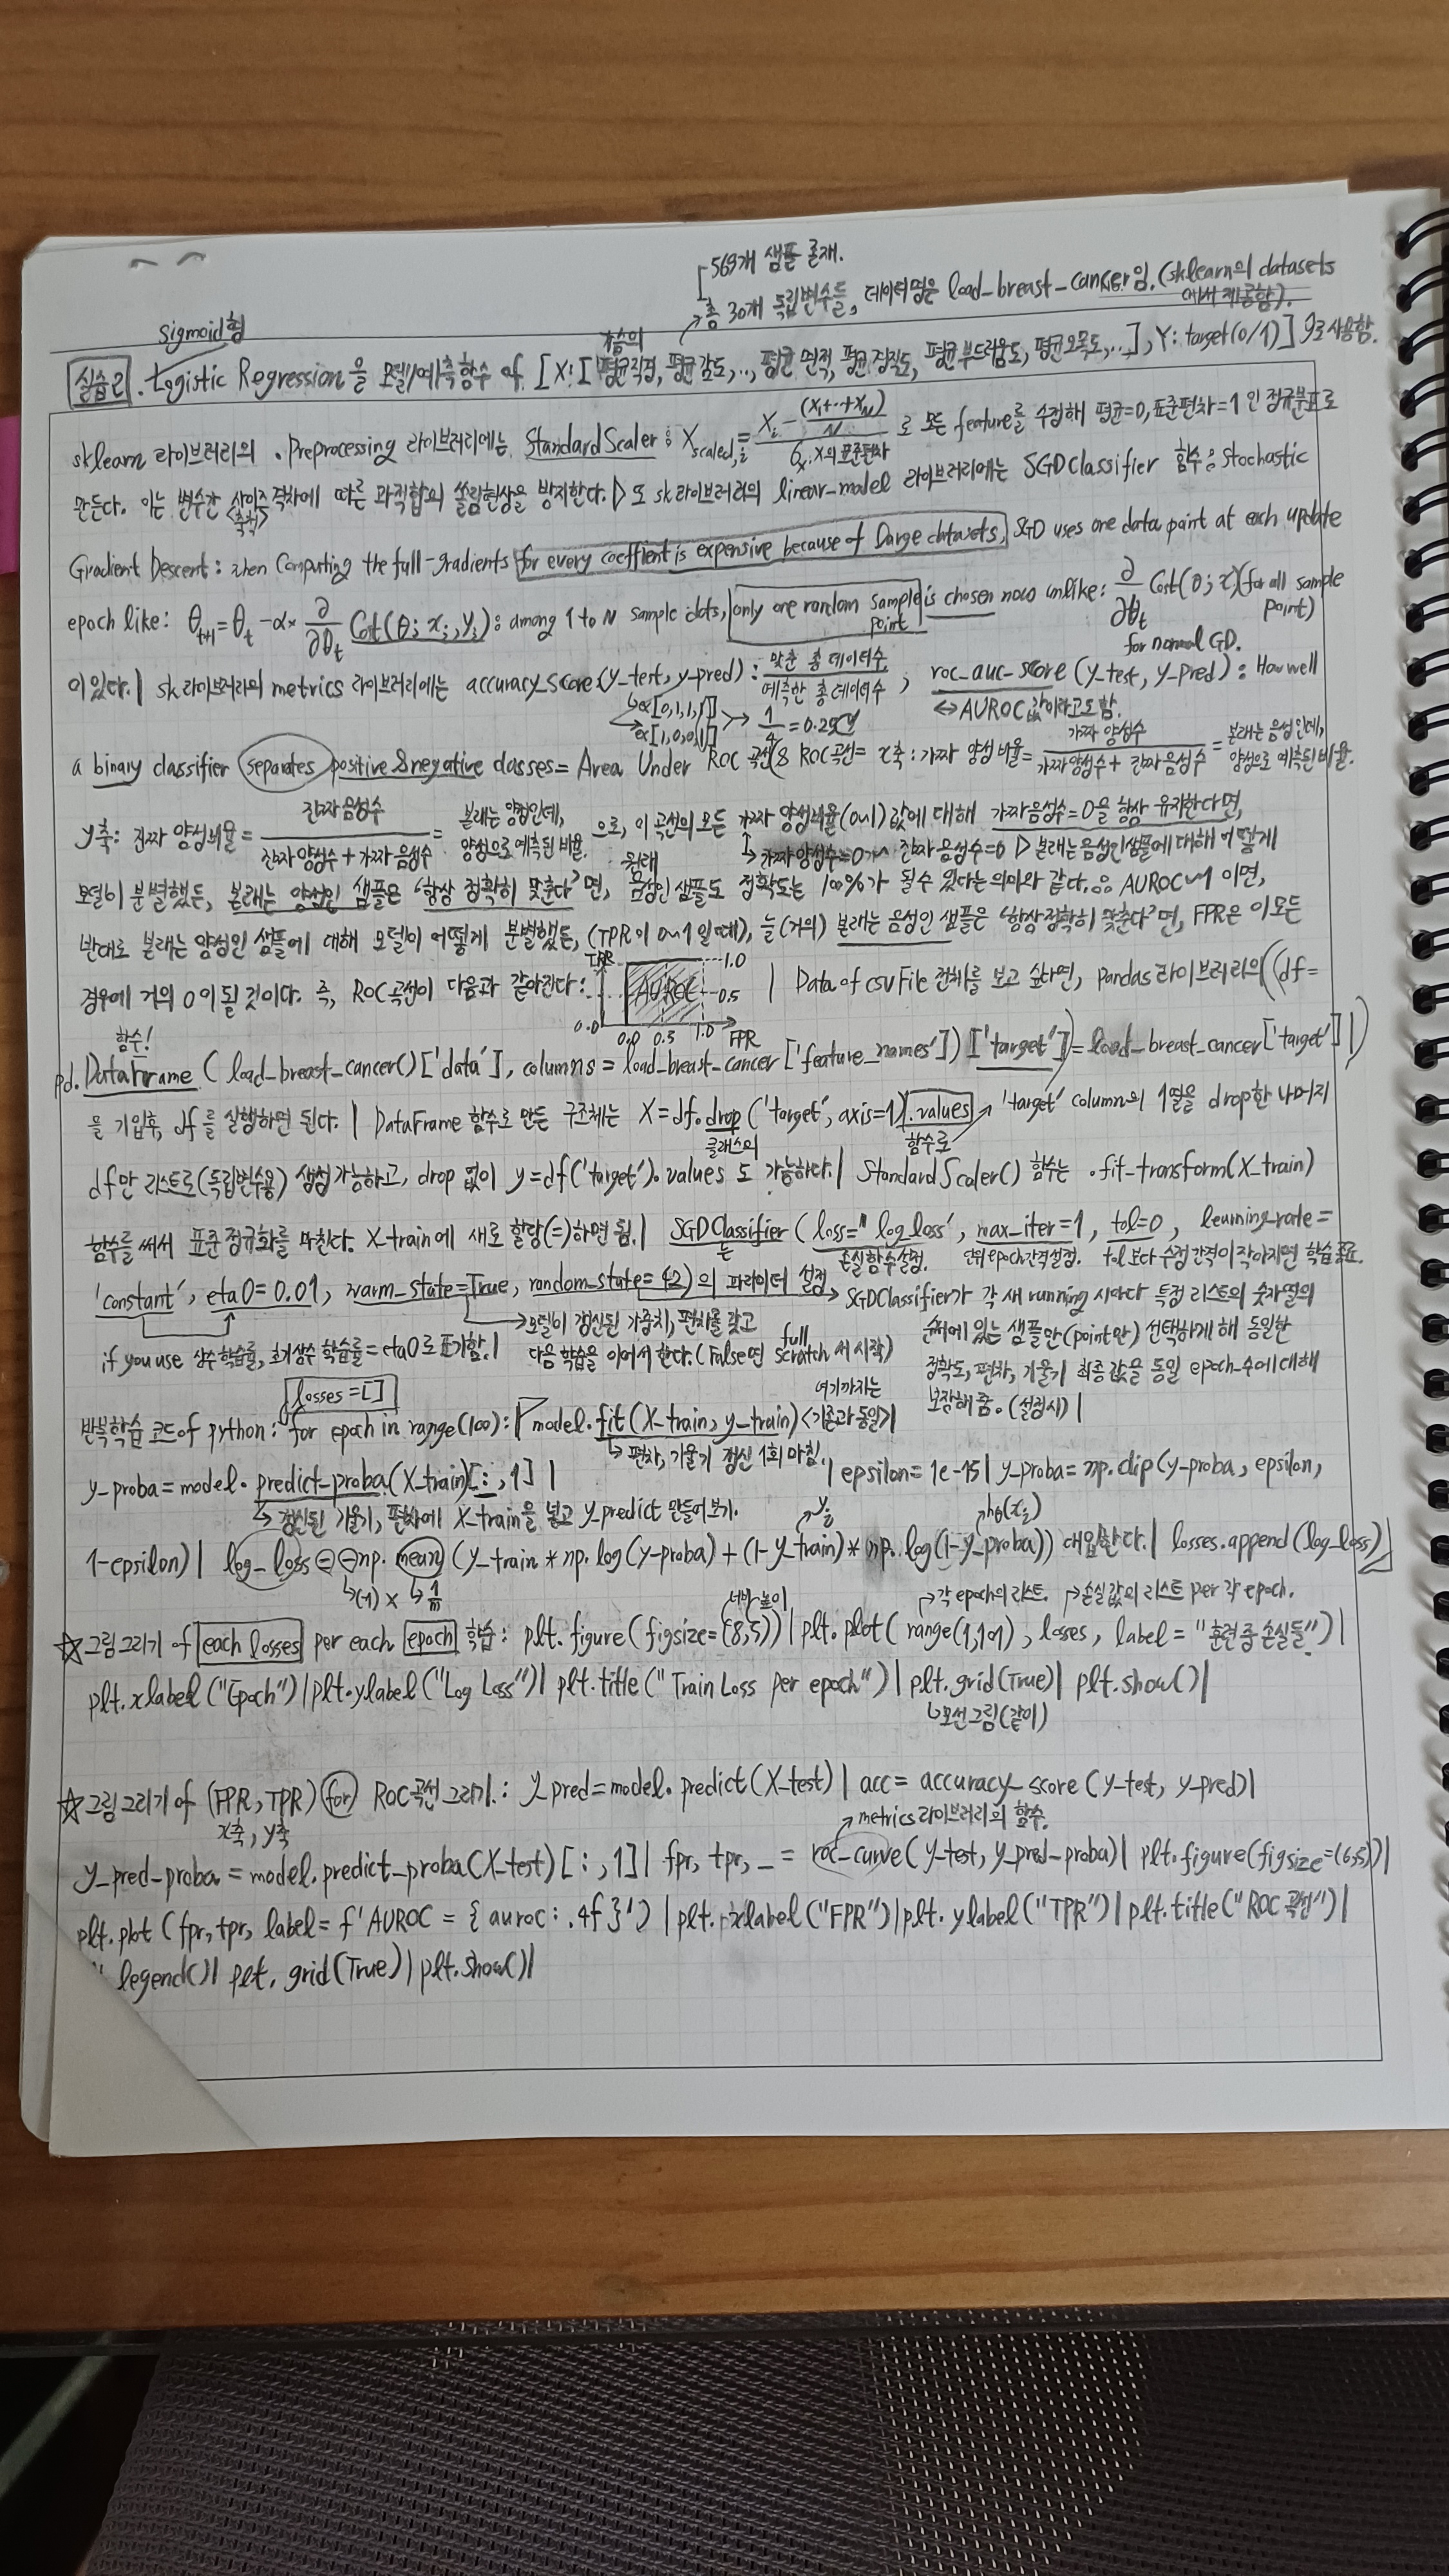 569개 샘플 존재.
총 30개 독립변수들, 데이터명은 load_breast_cancer임. (sklearn의 datasets
에서 제공함).
Sigmoid형
실습2. Logistic Regression을 모델/예측함수 of [X: [평균직경, 평균감도, .., 평균 면적, 평균 집직도, 평균부드러움도, 평균오목도, ...], Y: target(0/1)]으로 사용함.
sklearn 라이브러리의 .Preprocessing 라이브러리에는 StandardScaler : X scaled,i = Xi - (X1+…+XN)/N / 6x. X의 표준편차 로 모든 feature를 수정해 평균=0, 표준편차=1인 정규분포로
만든다. 이는 변수간 사이즈 격차에 따른 과적합의 쏠림현상을 방지한다. ▷ 또 sk라이브러리의 linear-model 라이브러리에는 SGDClassifier 함수 : Stochastic
Gradient Descent : when Computing the full-gradients for every coeffient is expensive because of Large datasets, SGD uses one data point at each update
epoch like: θt+1 = θt - α × ∂/∂θt Cost(θ; xi, yi) : among 1 to N sample dots, only one random sample point is chosen now unlike: ∂/∂θt Cost(θ; x) (for all sample point)
for normal GD.
이 있다. | sk 라이브러리의 metrics 라이브러리에는 accuracy_score(y-test, y-pred) : 맞춘 총 데이터수 / 예측한 총 데이터수 , roc_auc_score (y-test, y-pred) : How well
ex[0,1,1,1]
ex[1,0,0,1] → 1/4 = 0.25
↔ AUROC값이라고도함.
a binary classifier separates positive & negative classes = Area Under ROC 곡선 & ROC곡선 = x축 : 가짜 양성비율 = 가짜 양성수 / 가짜양성수 + 진짜음성수 = 본래는 음성인데, 양성으로 예측된 비율.
y축: 진짜 양성비율 = 진짜음성수 / 진짜양성수 + 가짜음성수 = 본래는 양성인데, 양성으로예측된 비율. 으로, 이 곡선의 모든 가짜 양성비율(0~1)값에 대해 가짜음성수=0을 항상 유지한다면,
→ 가짜양성수=0~ 진짜음성수=0 ▷ 본래는음성인샘플에대해 어떻게
원래
모델이 분별했든, 본래는 양성인 샘플은 '항상 정확히 맞춘다'면, 음성인샘플도 정확도는 100%가 될수 있다는의미와 같다. ∴ AUROC~1 이면,
반대로 본래는 양성인 샘플에 대해 모델이 어떻게 분별했든, (TPR이 0~1일때), 늘(거의) 본래는 음성인 샘플은 '항상정확히 맞춘다'면, FPR은 이모든
경우에 거의 0이 될 것이다. 즉, ROC곡선이 다음과 같아진다:
TPR 1.0
AUROC 0.5
0.0
0.0 0.5 1.0 FPR
| Data of csv File 전체를 보고 싶다면, pandas라이브러리의 ((df=
함수!
pd.DataFrame (load_breast_cancer()['data'], columns = load_breast_cancer['feature_names']) ['target'] = load_breast_cancer['target'] |)
을 기입후, df를 실행하면 된다. | DataFrame 함수로 만든 구조체는 X=df.drop('target', axis=1).values → 'target' column의 1열을 drop한 나머지
클래스의
함수로
df만 리스트로(독립변수용) 생성 가능하고, drop 없이 y=df('target').values도 가능하다. | StandardScaler() 함수는 .fit-transform(X_train)
함수를 써서 표준 정규화를 마친다. X-train에 새로 할당(=)하면 됨. | SGDClassifier (loss="log_loss', max_iter=1, tol=0, learning-rate=
는
손실함수설정. 단위epoch간격설정. tol보다 수정간격이작아지면 학습종료.
'constant', eta0=0.01, warm_state=True, random_state=42)의 파라미터 설정 → SGDClassifier가 각 새 running 시마다 특정 리스트의 숫자열의
→ 모델이 갱신된 가중치, 편차를 갖고
순서에 있는 샘플만(point만) 선택하게 해 동일한
if you use 상수학습률, 초기상수 학습률=eta0로표기함. |
다음 학습을 이어서 한다. (False면 full scratch서 시작)
정확도, 편차, 기울기 최종값을 동일 epoch-수에대해
losses=[]
여기까지는
보장해 줌. (설정시) |
반복학습 코드of python: for epoch in range(100): | model.fit(X-train, y-train) <기존과동일> |
→ 편차, 기울기 갱신 1회 마침.
y_proba = model.predict_proba(X-train)[:,1] | | epsilon=1e-15 | y-proba = np.clip(y-proba, epsilon,
↳ 갱신된 기울기, 편차에 X-train을 넣고 y_predict 만들어보기.
yi
hθ(xi)
1-epsilon) | log_loss = -np.mean (y-train * np.log(y-proba) + (1-y_train) * np.log(1-y_proba)) 대입한다. | losses.append(log_loss)
↳(-1) × ↳1/m
너비 높이
→각epoch의리스트. →손실값의리스트 per 각 epoch.
☆그림그리기 of each losses per each epoch 학습: plt.figure(figsize=(8,5)) | plt.plot(range(1,101), losses, label = "훈련중손실들") |
plt.xlabel("Epoch") | plt.ylabel("Log Loss") | plt.title("Train Loss per epoch") | plt.grid(True) | plt.show() |
↳모선그림(같이)
☆그림그리기 of (FPR, TPR) for ROC곡선 그리기. : y_pred=model.predict(X-test) | acc = accuracy_score (y-test, y-pred) |
x축, y축
metrics라이브러리의 함수.
y_pred-proba = model.predict_proba(X-test)[:,1] | fpr, tpr, _ = roc_curve(y-test, y-pred-proba) | plt.figure(figsize=(6,5)) |
plt.plot (fpr, tpr, label = f'AUROC = {auroc:.4f}') | plt.xlabel("FPR") | plt.ylabel("TPR") | plt.title("ROC 곡선") |
legend() | plt.grid(True) | plt.show() |